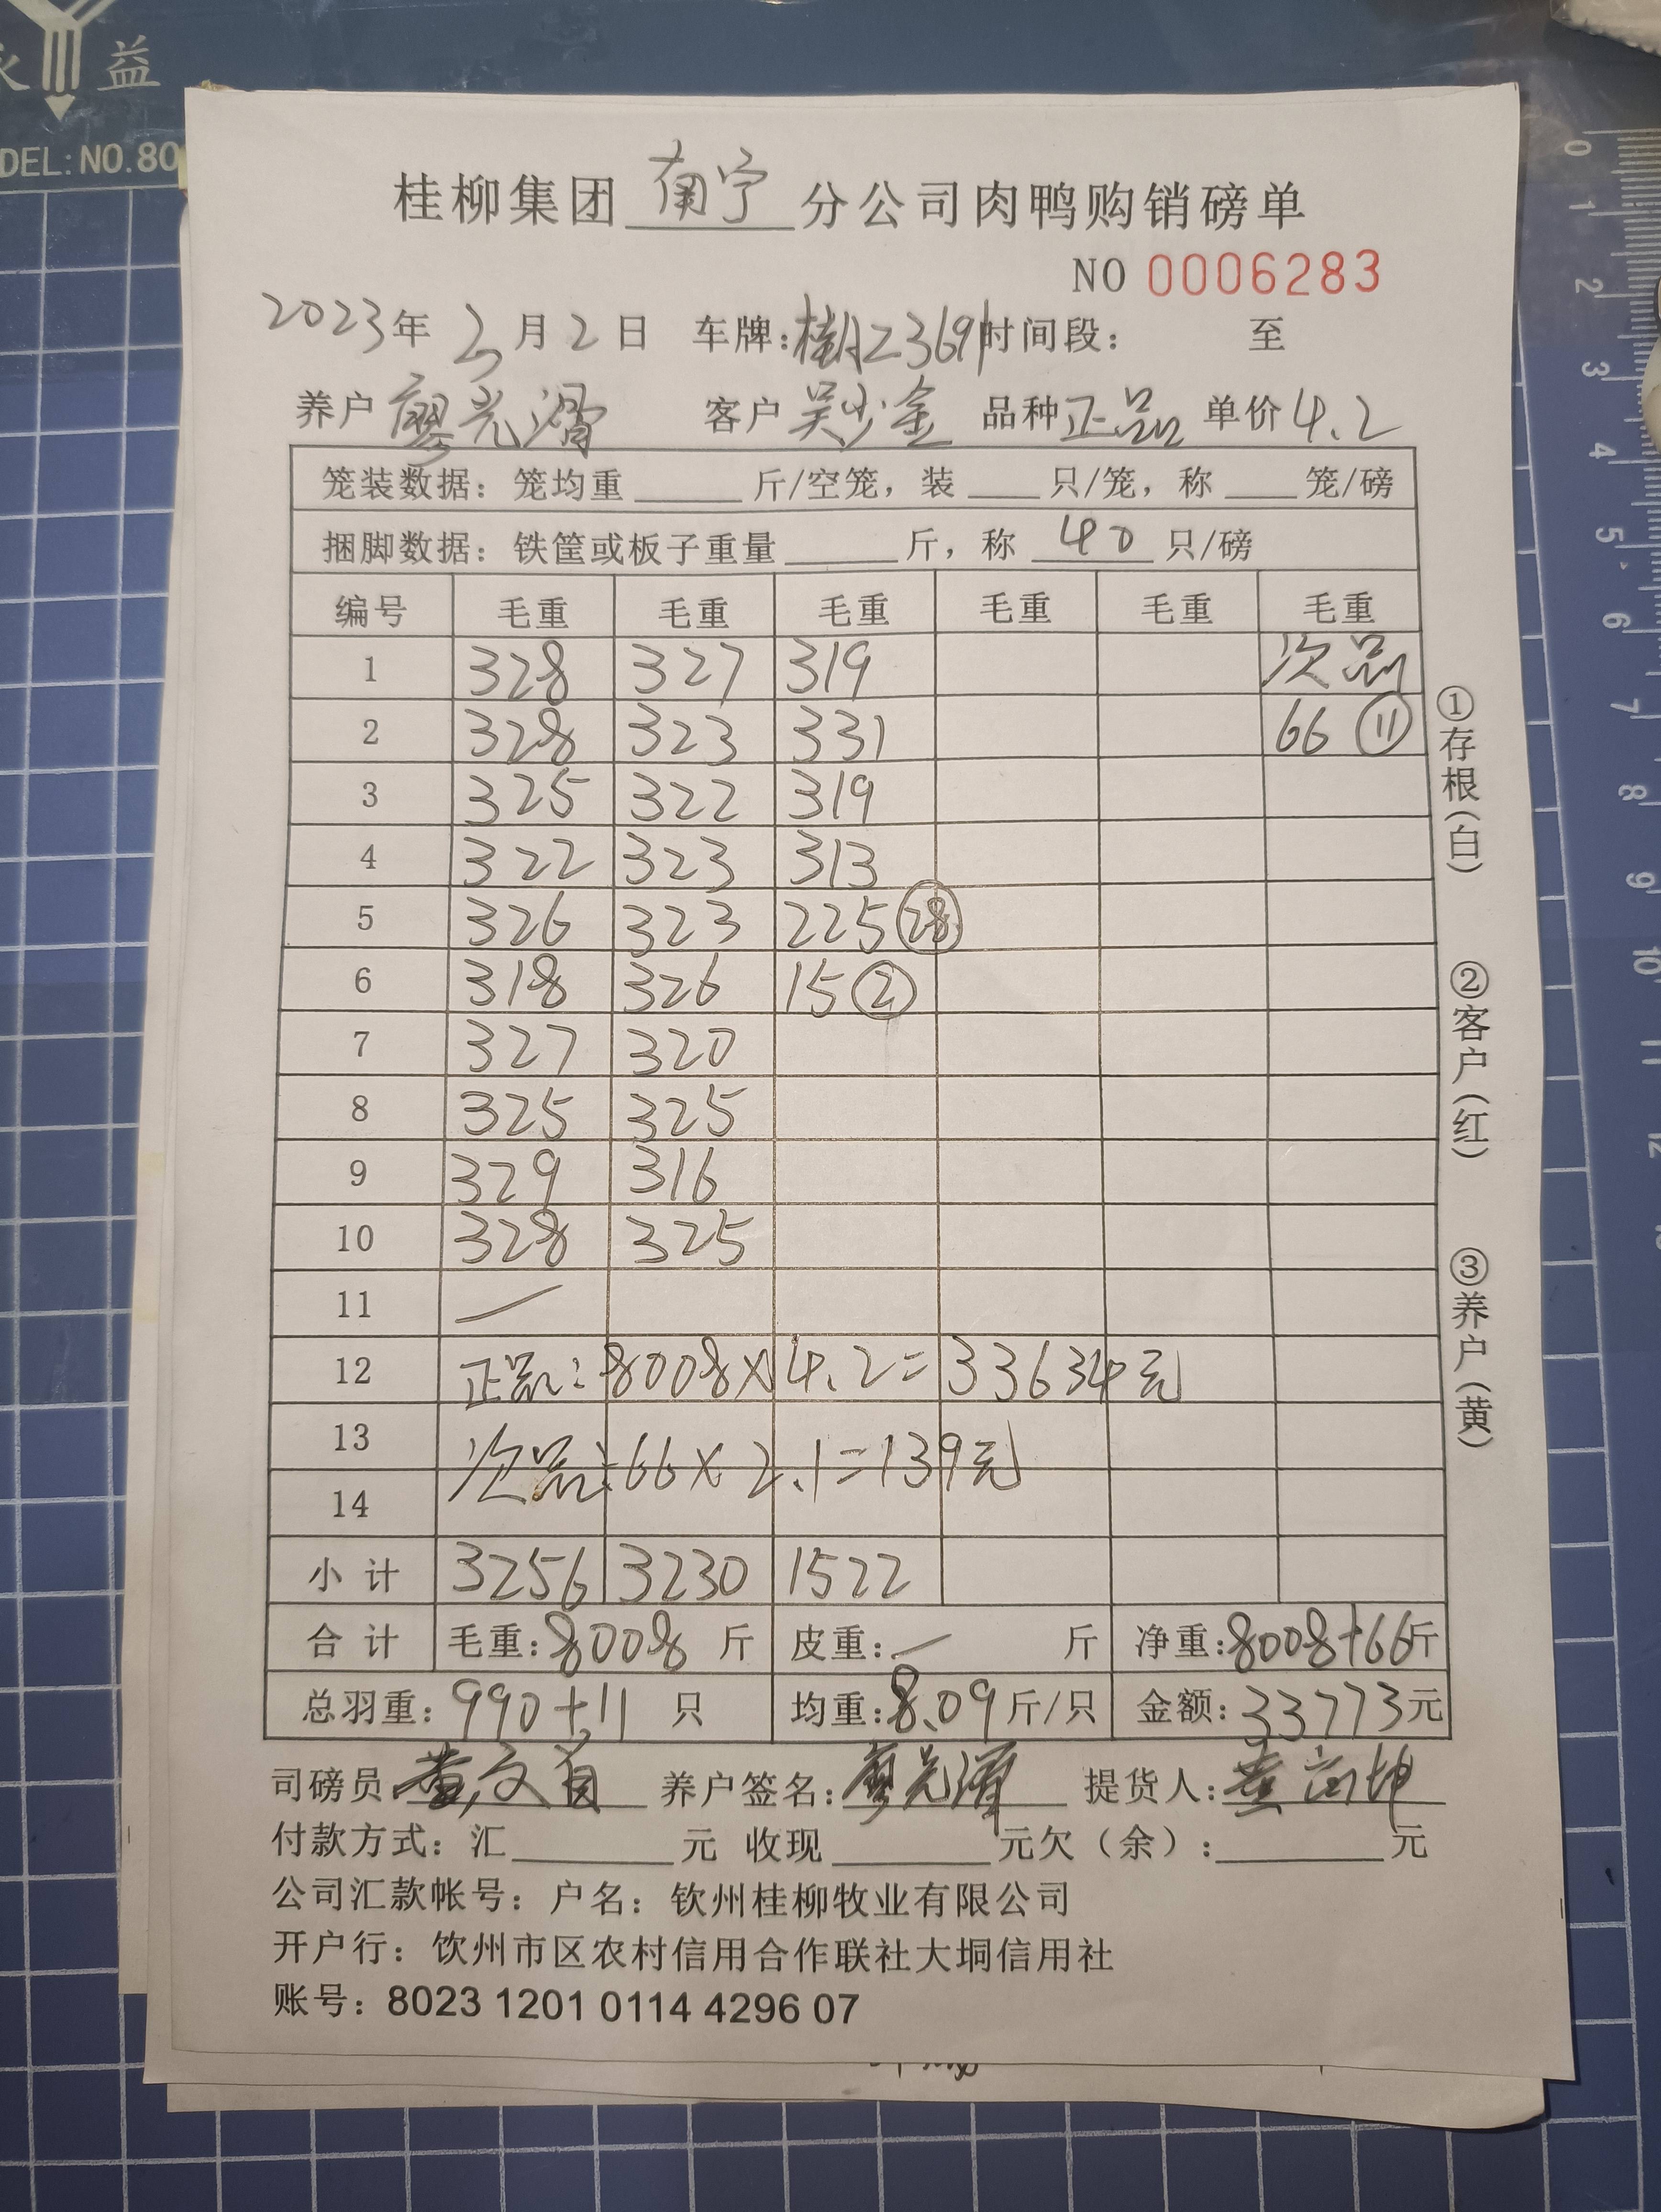 益
DEL:NO.80
桂柳集团南宁分公司肉鸭购销磅单
NO 0006283
2023年2月2日 车牌: 时间段: 至
养户 廖光 客户 吴少金 品种 正品 单价 4.2
笼装数据: 笼均重 斤/空笼, 装 只/笼, 称 笼/磅
捆脚数据: 铁筐或板子重量 斤, 称 40 只/磅
编号 毛重 毛重 毛重 毛重 毛重 毛重
1 328 327 319 次品
2 328 323 331 66 ⑪
3 325 322 319
4 322 323 313
5 326 323 225 ㉘
6 318 326 15 ②
7 327 320
8 325 325
9 329 316
10 328 325
11 —
12 正品:8008×4.2=33634元
13 次品:66×2.1=139元
14
小计 3256 3230 1522
合计 毛重:8008 斤 皮重:— 斤 净重:8008+66斤
总羽重:990+11 只 均重:8.09斤/只 金额:33773元
司磅员:黄文 养户签名:廖光 提货人:黄
付款方式: 汇 元 收现 元欠(余): 元
公司汇款帐号: 户名: 钦州桂柳牧业有限公司
开户行: 钦州市区农村信用合作联社大垌信用社
账号: 8023 1201 0114 4296 07
①存根(白)
②客户(红)
③养户(黄)
0
1
2
3
4
5
6
7
8
9
10
11
12